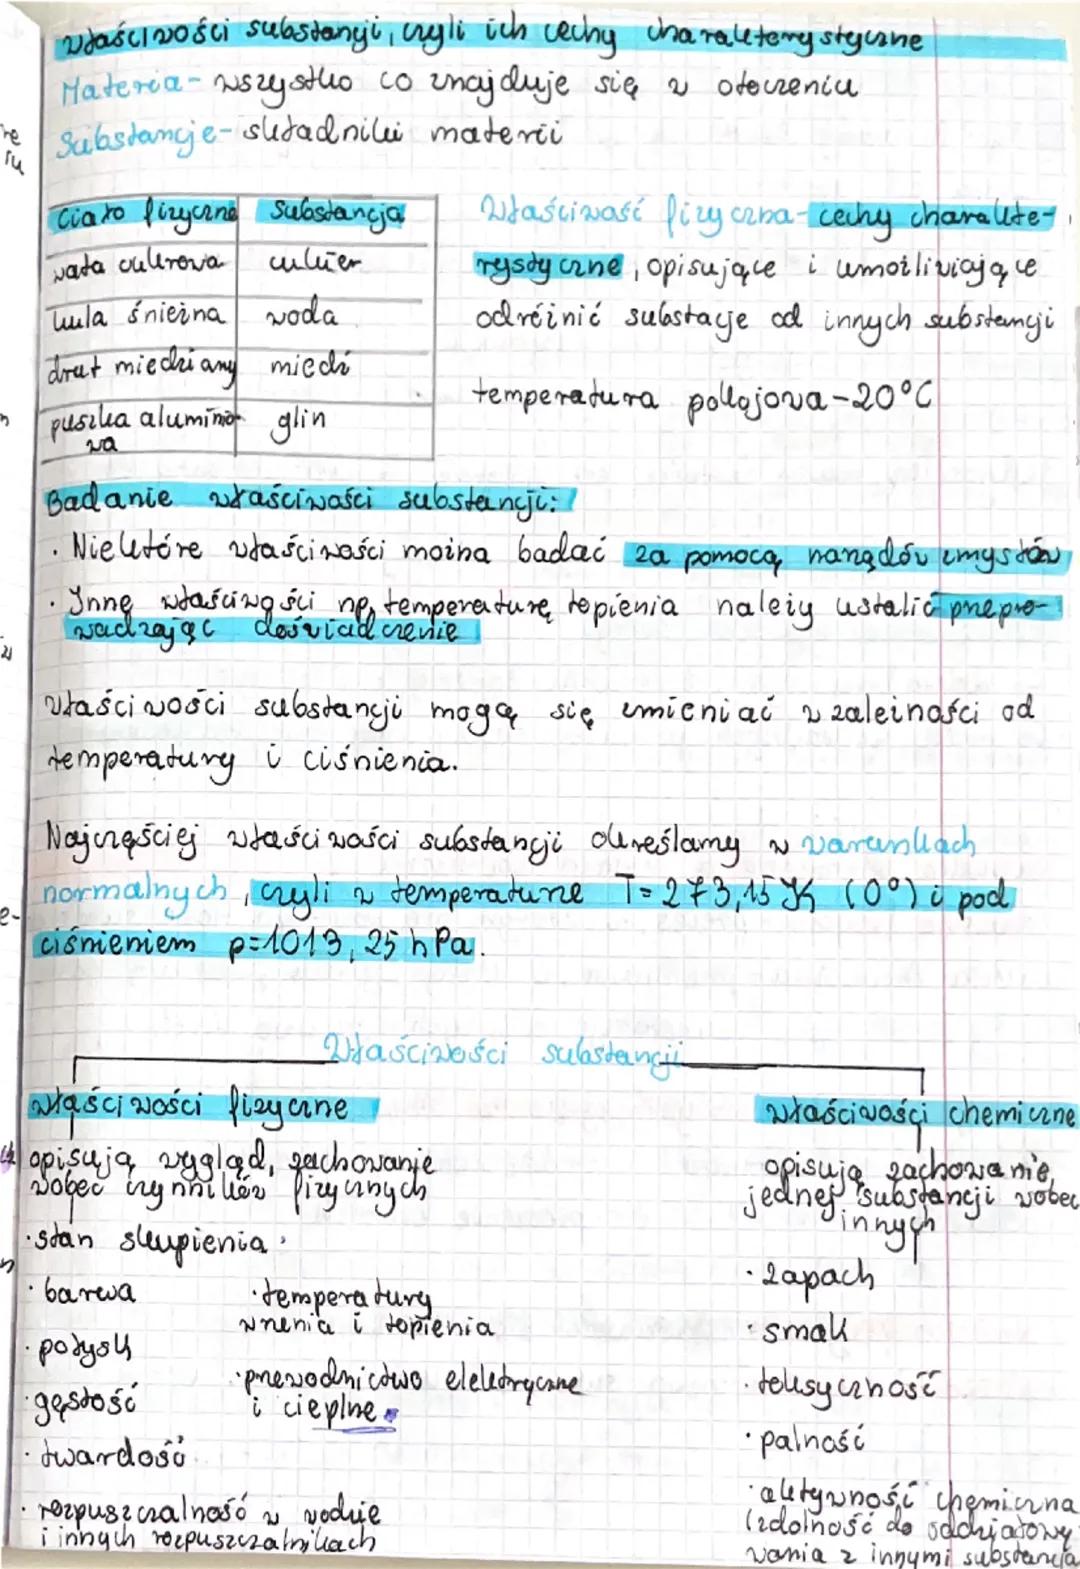 właściwości substancji, czyli ich cechy charakterystyczne
Materia - wszystko co znajduje się w otoczeniu
Substancje - składniki materii
Ciało fizyczne | Substancja
wata cukrowa | cukier
kula śnieżna | woda
drut miedziany | miedź
puszka aluminio-
wa | glin
Właściwość fizyczna - cechy charakte-
rystyczne, opisujące i umożliwiające
odróżnić substacje od innych substancji
temperatura pokojowa - 20°C
Badanie właściwości substancji:
· Niektóre właściwości można badać za pomocą narządów zmysłów
· Inne właściwości np, temperaturę topienia należy ustalić przepro-
wadzając doświadczenie
właściwości substancji mogą się zmieniać w zależności od
temperatury i ciśnienia.
Najczęściej właściwości substancji określamy w warunkach
normalnych, czyli w temperaturze T=273,15 K (0°) i pod
ciśnieniem p=1013,25 hPa.
Właściwości substancji
właściwości fizyczne
opisują wygląd, zachowanie
wobec czynników fizycznych
· stan skupienia
· barwa
· połysk
· gęstość
· twardość
· rozpuszczalność w wodzie
i innych rozpuszczalnikach
· temperatury
wrzenia i topienia
· przewodnictwo elektryczne
i cieplne
właściwości chemiczne
opisują zachowanie
jednej substancji wobec
innych
· zapach
· smak
· toksyczność
· palność
· aktywność chemiczna
(zdolność do oddziaływy
wania z innymi substancja